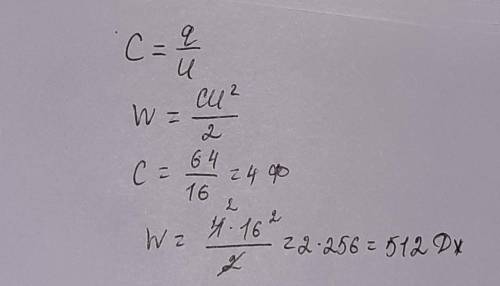 C = q/U
W = CU²/2
C = 64/16 = 4 Ф
W = 4·16²/2 = 2·256 = 512 Дж